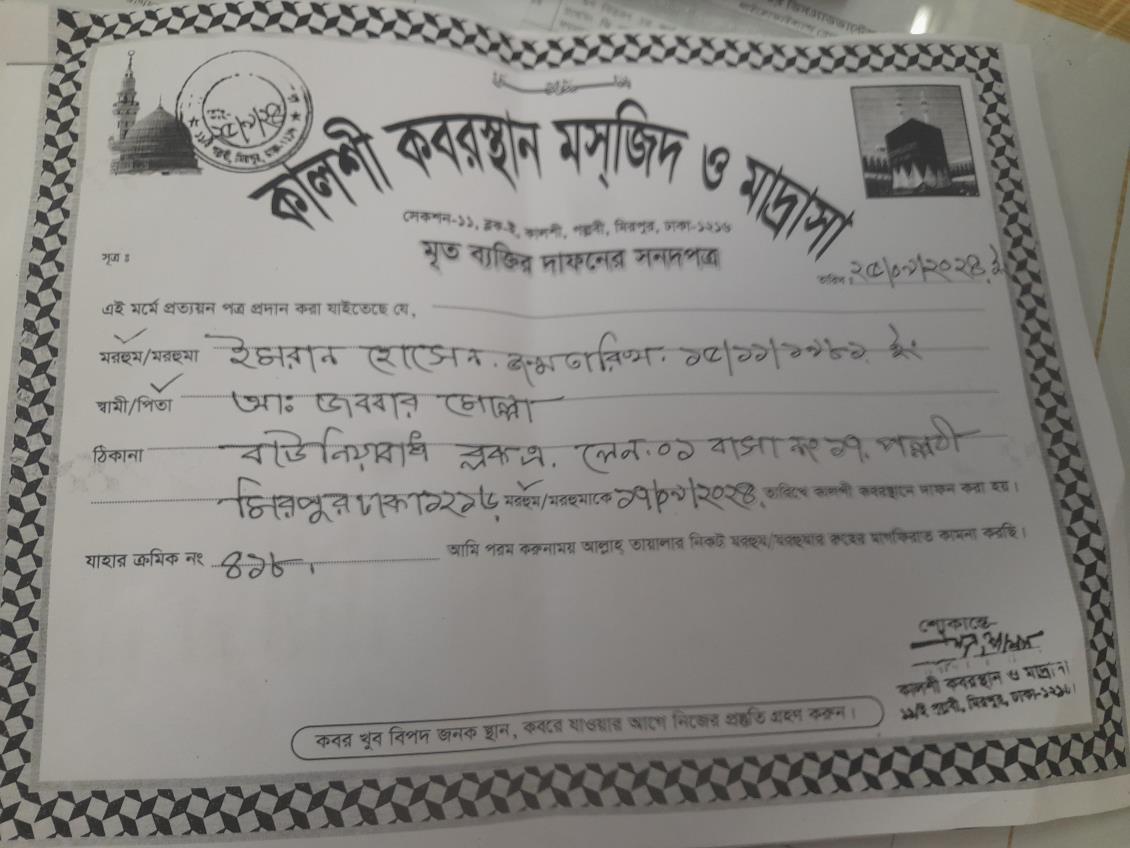 কালশী কবরস্থান মস্‌জিদ ও মাদ্রাসা
সেকশন-১১, ব্লক-ই, কালশী, পল্লবী, মিরপুর, ঢাকা-১২১৬
মৃত ব্যক্তির দাফনের সনদপত্র
সূত্র ঃ
তারিখ ঃ ২৫/০৯/২০২৪ ইং
এই মর্মে প্রত্যয়ন পত্র প্রদান করা যাইতেছে যে,
মরহুম/মরহুমা ইমরান হোসেন. জন্ম তারিখ. ১৫/১১/১৯৮২ ইং
স্বামী/পিতা আঃ জব্বার মোল্লা
ঠিকানা বাউনিয়াবাধ ব্লক এ. লেন.০১ বাসা নং ১৭. পল্লবী
মিরপুর ঢাকা ১২১৬ মরহুম/মরহুমাকে ১৭/০৯/২০২৪ তারিখে কালশী কবরস্থানে দাফন করা হয়।
যাহার ক্রমিক নং ৪১৮ আমি পরম করুনাময় আল্লাহ তায়ালার নিকট মরহুম/মরহুমার রুহের মাগফিরাত কামনা করছি।
শোকান্তে
কালশী কবরস্থান ও মাদ্রাসা
১১/ই পল্লবী, মিরপুর, ঢাকা-১২১৬।
কবর খুব বিপদ জনক স্থান, কবরে যাওয়ার আগে নিজের প্রস্তুতি গ্রহণ করুন।